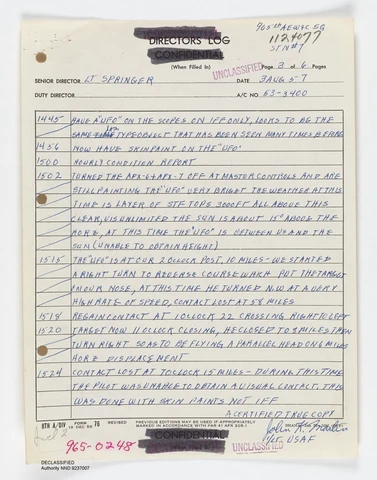 965th AEW&C SQ
1124077
STN #7
DIRECTORS LOG
CONFIDENTIAL
(When Filled In)
UNCLASSIFIED
Page 3 of 6 Pages
SENIOR DIRECTOR LT SPRINGER
DATE 3 AUG 57
DUTY DIRECTOR
A/C NO 53-3400
1445 HAVE A "UFO" ON THE SCOPES ON IFF ONLY, LOOKS TO BE THE
SAME TYPE OBJECT THAT HAS BEEN SEEN MANY TIMES BEFORE
1456 NOW HAVE SKIN PAINT ON THE "UFO"
1500 HOURLY CONDITION REPORT
1502 TURNED THE APX-6 & APX-7 OFF AT MASTER CONTROLS AND ARE
STILL PAINTING THE "UFO" VERY BRIGHT THE WEATHER AT THIS
TIME IS LAYER OF STF TOPS 3000FT ALL ABOVE THIS
CLEAR, VIS UNLIMITED THE SUN IS ABOUT 15° ABOVE THE
HORZ, AT THIS TIME THE "UFO" IS BETWEEN US AND THE
SUN (UNABLE TO OBTAIN HEIGHT)
1515 THE "UFO" IS AT OUR 2 OCLOCK POST, 10 MILES - WE STARTED
A RIGHT TURN TO REVERSE COURSE WHICH PUT THE TARGET
IN OUR NOSE, AT THIS TIME HE TURNED N.W AT A VERY
HIGH RATE OF SPEED, CONTACT LOST AT 58 MILES
1518 REGAIN CONTACT AT 1 OCLOCK 22 CROSSING RIGHT TO LEFT
1520 TARGET NOW 11 OCLOCK CLOSING, HE CLOSED TO 8 MILES THEN
TURN RIGHT SO AS TO BE FLYING A PARALLEL HEAD ON 6 MILES
HORZ DISPLACEMENT
1524 CONTACT LOST AT 7 OCLOCK 15 MILES - DURING THIS TIME
THE PILOT WAS UNABLE TO OBTAIN A VISUAL CONTACT. THIS
WAS DONE WITH SKIN PAINTS NOT IFF
A CERTIFIED TRUE COPY
8TH A/DIV
FORM 76 REVISED
PREVIOUS EDITIONS MAY BE USED IF APPROPRIATELY
MARKED IN ACCORDANCE WITH PAR 41 AFR 205-1
1/LT. USAF
965-0248
CONFIDENTIAL
UNCLASSIFIED
DECLASSIFIED
Authority NND 9237007